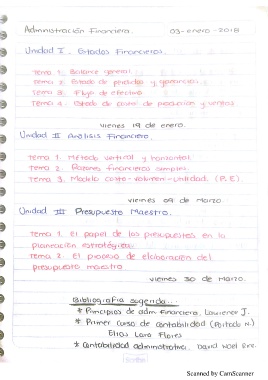 Administración Financiera. 03-enero-2018
Unidad I. Estados Financieros.
Tema 1. Balance general.
Tema 2. Estado de pérdidas y ganancias.
Tema 3. Flujo de efectivo
Tema 4. Estado de costo de producción y ventas
viernes 19 de enero.
Unidad II Análisis Financiero.
Tema 1. Método vertical y horizontal.
Tema 2. Razones financieras simples.
Tema 3. Modelo costo-volumen-utilidad. (P.E).
viernes 09 de marzo.
Unidad III Presupuesto Maestro.
Tema 1. El papel de los presupuestos en la
planeación estratégica.
Tema 2. El proceso de elaboración del
presupuesto maestro.
viernes 30 de marzo.
Bibliografía sugerida...
* Principios de adm. financiera. Lawrence J.
* Primer curso de contabilidad (Portada N.)
Elías Lara Flores
* Contabilidad administrativa. David Noel
Scribe
Scanned by CamScanner